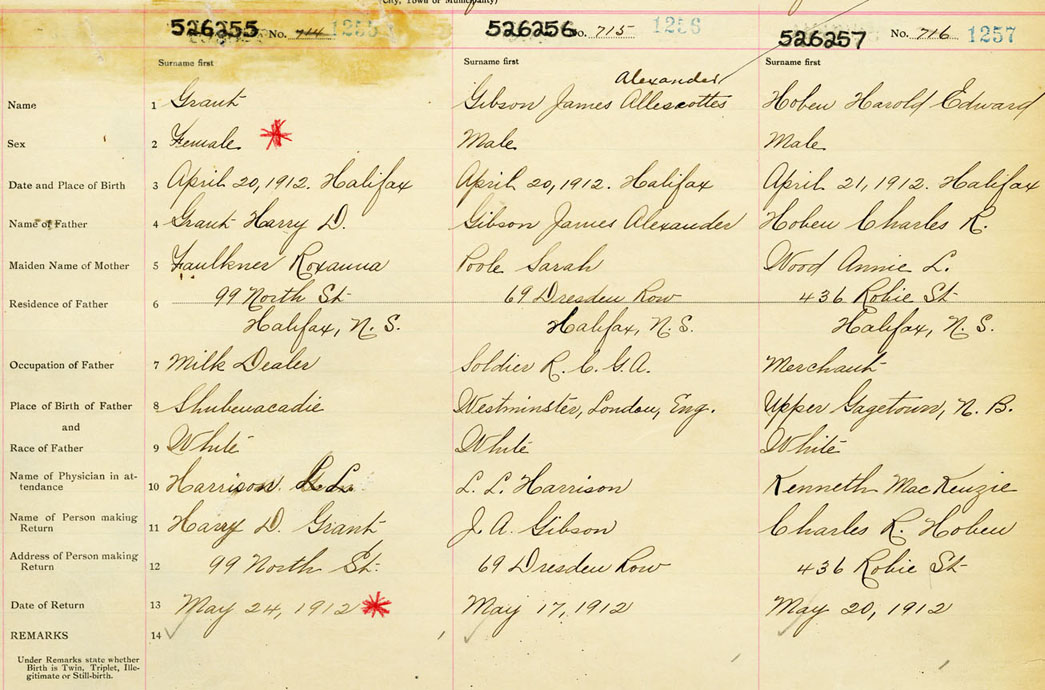 (City, Town or Municipality)
526255 No. 714 1255 526256 No. 715 1256 526257 No. 716 1257
Surname first Surname first Surname first
Alexander
Name 1 Grant Gibson James Allescottes Hoben Harold Edward
Sex 2 Female Male Male
Date and Place of Birth 3 April 20, 1912. Halifax April 20, 1912. Halifax April 21, 1912. Halifax
Name of Father 4 Grant Harry D. Gibson James Alexander Hoben Charles R.
Maiden Name of Mother 5 Faulkner Roxanna Poole Sarah Wood Annie L.
Residence of Father 6 99 North St 69 Dresden Row 436 Robie St
Halifax, N. S. Halifax, N. S. Halifax, N. S.
Occupation of Father 7 Milk Dealer Soldier R. C. G. A. Merchant
Place of Birth of Father 8 Shubenacadie Westminster, London, Eng. Upper Gagetown, N. B.
and
Race of Father 9 White White White
Name of Physician in at-
tendance 10 Harrison L. L. L. L. Harrison Kenneth MacKenzie
Name of Person making
Return 11 Harry D. Grant J. A. Gibson Charles R. Hoben
Address of Person making
Return 12 99 North St. 69 Dresden Row 436 Robie St
Date of Return 13 May 24, 1912 May 17, 1912 May 20, 1912
REMARKS 14
Under Remarks state whether
Birth is Twin, Triplet, Ille-
gitimate or Still-birth.